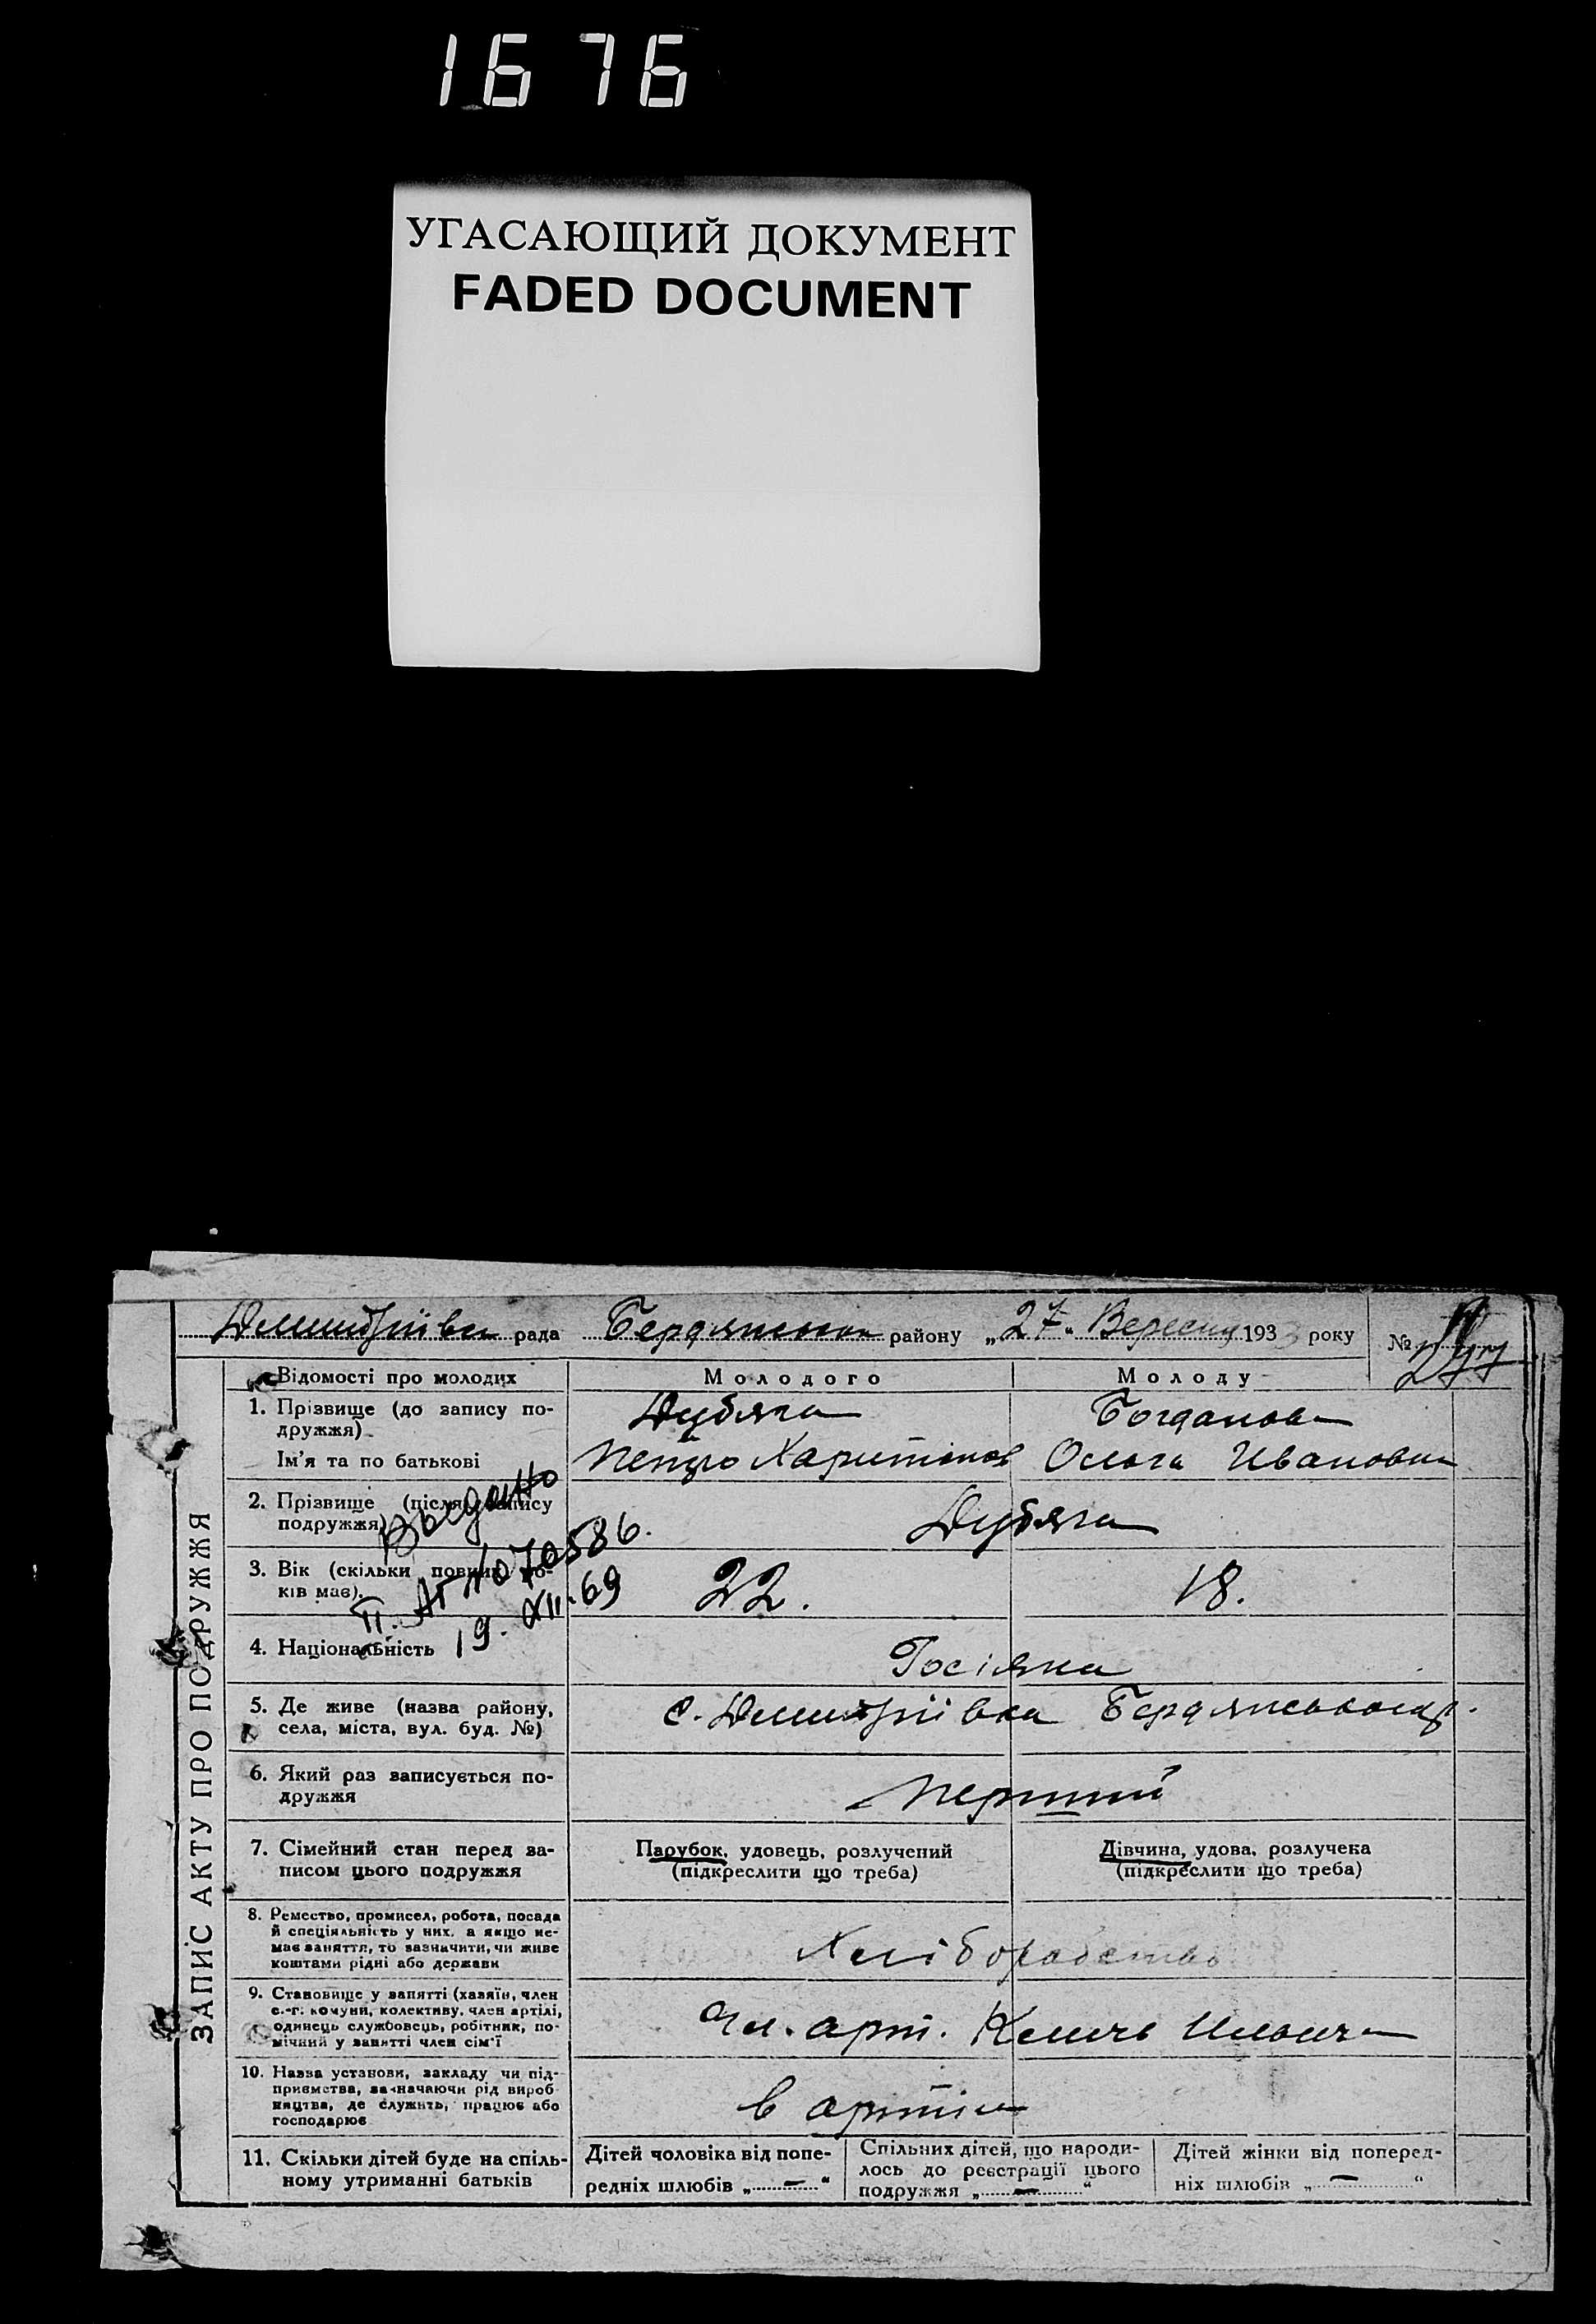 1676
УГАСАЮЩИЙ ДОКУМЕНТ
FADED DOCUMENT
Дмитріівка рада Бердянського району „27„ Вересня 1933 року №
ЗАПИС АКТУ ПРО ПОДРУЖЖЯ
Відомості про молодих Молодого Молоду
1. Прізвище (до запису по-
дружжя) Дубяга Богданова
Ім'я та по батькові Петро Харитонов Ольга Ивановна
2. Прізвище (після запису
подружжя) Дубяга
Выдано
II. АГ №070586.
19.XII.69
3. Вік (скільки повних ро-
ків має). 22. 18.
4. Національність Росіяни
5. Де живе (назва району,
села, міста, вул. буд. №) с. Дмитріівка Бердянського р.
6. Який раз записується по-
дружжя перший
7. Сімейний стан перед за-
писом цього подружжя
Парубок, удовець, розлучений
(підкреслити що треба)
Дівчина, удова, розлучека
(підкреслити що треба)
8. Ремество, промисел, робота, посада
й спеціяльність у них, а якщо не-
має заняття, то зазначити, чи живе
коштами рідні або держави
Хліборобство
9. Становище у занятті (хазяїн, член
с.-г. комуни, колективу, член артілі,
одинець службовець, робітник, по-
мічний у занятті член сім'ї
Чл. арт. Ильича
10. Назва установи, закладу чи під-
приємства, зазначаючи рід вироб
ництва, де служить, працює або
господарює
в артіли
11. Скільки дітей буде на спіль-
ному утриманні батьків
Дітей чоловіка від попе-
редніх шлюбів „ — “
Спільних дітей, що народи-
лось до реєстрації цього
подружжя „ — “
Дітей жінки від поперед-
ніх шлюбів „ — “